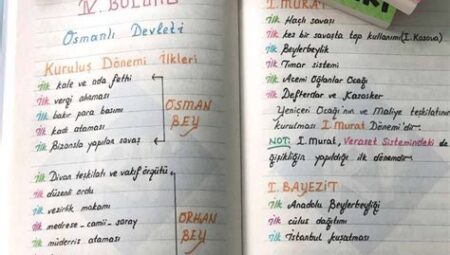 IV. BÖLÜM
Osmanlı Devleti
Kuruluş Dönemi İlkleri
ilk kale ve ada fethi
ilk vergi alınması
ilk bakır para basımı
ilk kadı ataması
ilk Bizansla yapılan savaş
OSMAN
BEY
ilk Divan teşkilatı ve vakıf örgütü
ilk düzenli ordu
ilk vezirlik makamı
ilk medrese-cami-saray
ilk müderris ataması
ORHAN
BEY
I. MURAT
ilk Haçlı savaşı
ilk kez bir savaşta top kullanımı (I. Kosova)
ilk Beylerbeylik
ilk Tımar sistemi
ilk Acemi Oğlanlar Ocağı
ilk Defterdar ve Kazasker
Yeniçeri Ocağı'nın ve Maliye teşkilatının
kurulması I. Murat Dönemi'dir.
NOT: I. Murat, Veraset Sistemindeki
yapıldığı ilk dönemdir.
I. BAYEZİT
ilk Anadolu Beylerbeyliği
ilk cülus dağıtımı
ilk İstanbul kuşatması